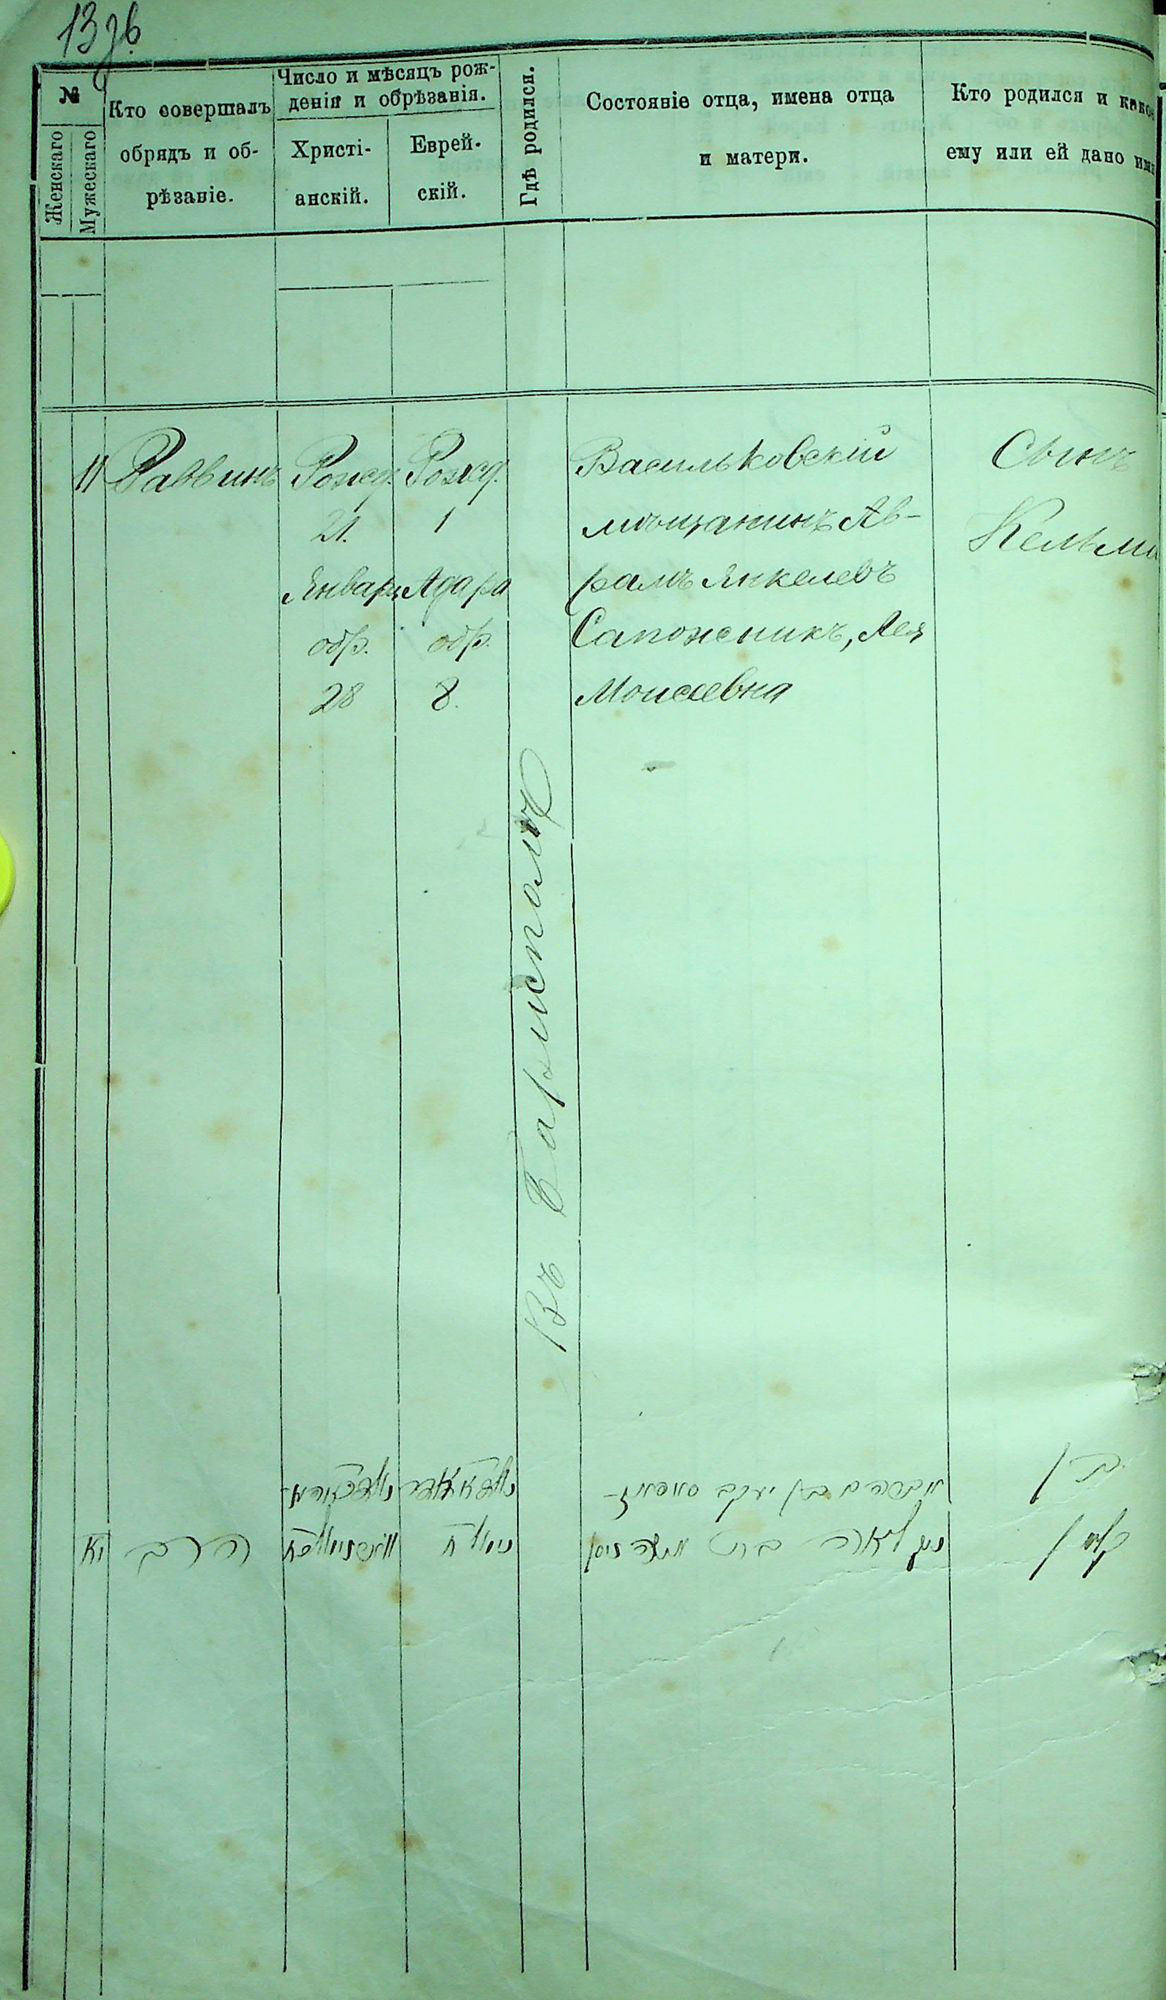 13 об
№
Женскаго
Мужескаго
Кто совершалъ
обрядъ и об-
рѣзаніе.
Число и мѣсяцъ рож-
денія и обрѣзанія.
Христі-
анскій.
Еврей-
скій.
Гдѣ родился.
Состояніе отца, имена отца
и матери.
Кто родился и какое
ему или ей дано имя
11
Раввинъ
Рожд.
21.
Январ.
обр.
28
Рожд.
1
Адара
обр.
8.
Въ Барисполѣ
Васильковскій
мѣщанинъ Ав-
рамъ Янкелевъ
Сапожникъ, Лея
Моисеевна
Сынъ
Кельма
אברהם בן יעקב
לאה בת משה
בן
קלמן
הרב
יא